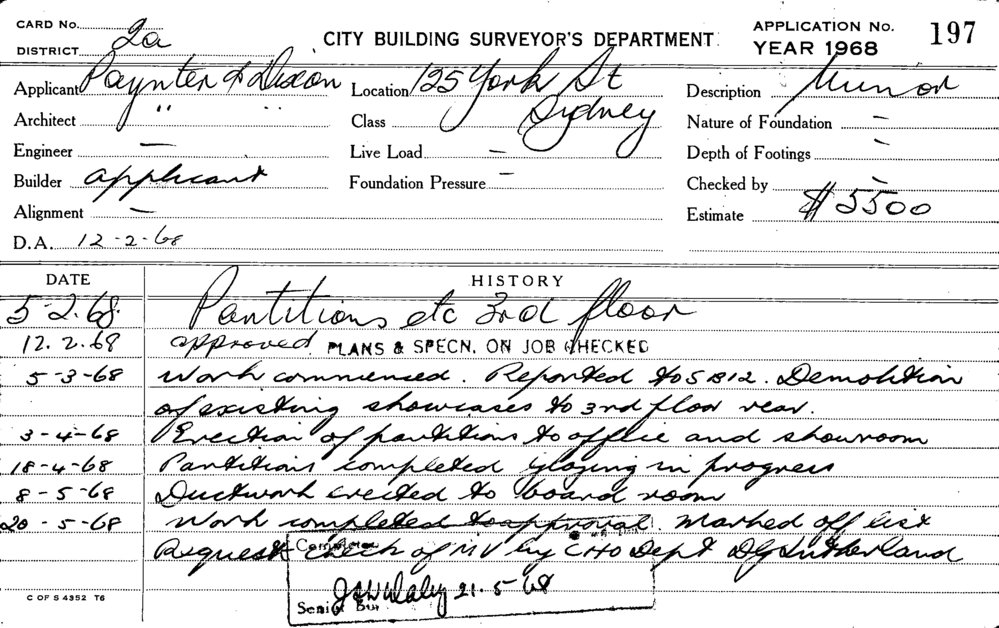 CARD No.
DISTRICT 2a
CITY BUILDING SURVEYOR'S DEPARTMENT
APPLICATION No. 197
YEAR 1968
Applicant Paynter & Dixon
Location 125 York St
Sydney
Description Minor
Architect " "
Class
Nature of Foundation —
Engineer —
Live Load —
Depth of Footings —
Builder applicant
Foundation Pressure —
Checked by —
Alignment —
Estimate $5500
D.A. 12-2-68
DATE HISTORY
5-2.68. Partitions etc 3rd floor
12.2.68 approved. PLANS & SPECN. ON JOB CHECKED
5-3-68 Work commenced. Reported to SB12. Demolition
of existing showcases to 3rd floor rear.
3-4-68 Erection of partitions to office and showroom
18-4-68 Partitions completed glazing in progress
8-5-68 Ductwork erected to board room
20-5-68 Work completed to approval. Marked off list
Request check of MV by CHO Dept DG Sutherland
21.5.68
Senior
C OF S 4352 T6